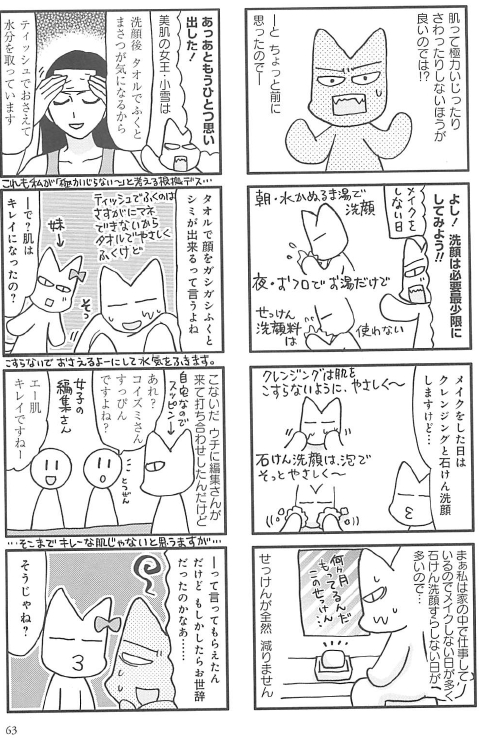 肌って極力いじったり
さわったりしないほうが
良いのでは!?
ーと ちょっと前に
思ったのでー
よし! 洗顔は必要最少限に
してみよう!!
メイクを
しない日
朝・水かぬるま湯で
洗顔
夜・おフロでお湯だけで
せっけん
洗顔料は
使わない
メイクをした日は
クレンジングと石けん洗顔
しますけど…
クレンジングは肌を
こすらないように、やさしく〜
石けん洗顔は、泡で
そっとやさしく〜
まぁ私は家の中で仕事して
いるのでメイクしない日が多く
石けん洗顔すらしない日が
多いので…
何ヶ月
もってるんだ
このせっけん…
せっけんが全然 減りません
あっあともうひとつ思い
出した!
美肌の女王・小雪は
洗顔後 タオルでふくと
まさつが気になるから
ティッシュでおさえて
水分を取っています
これも私が「極力いじらない〜」と考える根拠デス…
タオルで顔をガシガシふくと
シミが出来るって言うよね
ティッシュでふくのは
さすがにマネ
できないから
タオルでやさしく
ふくけど
そっ
妹→
ーで?肌は
キレイになったの?
こすらないで おさえるよーにして水気をふきます。
こないだ ウチに編集さんが
来て打ち合わせしたんだけど
自宅なので
スッピン→
あれ?
コイズミさん
すっぴん
ですよね?
とつぜん
女子の
編集さん
エー肌
キレイですねー
…そこまでキレーな肌じゃないと思うますが…
ーって言ってもらえたん
だけど もしかしたらお世辞
だったのかなあ……
そうじゃね?
63